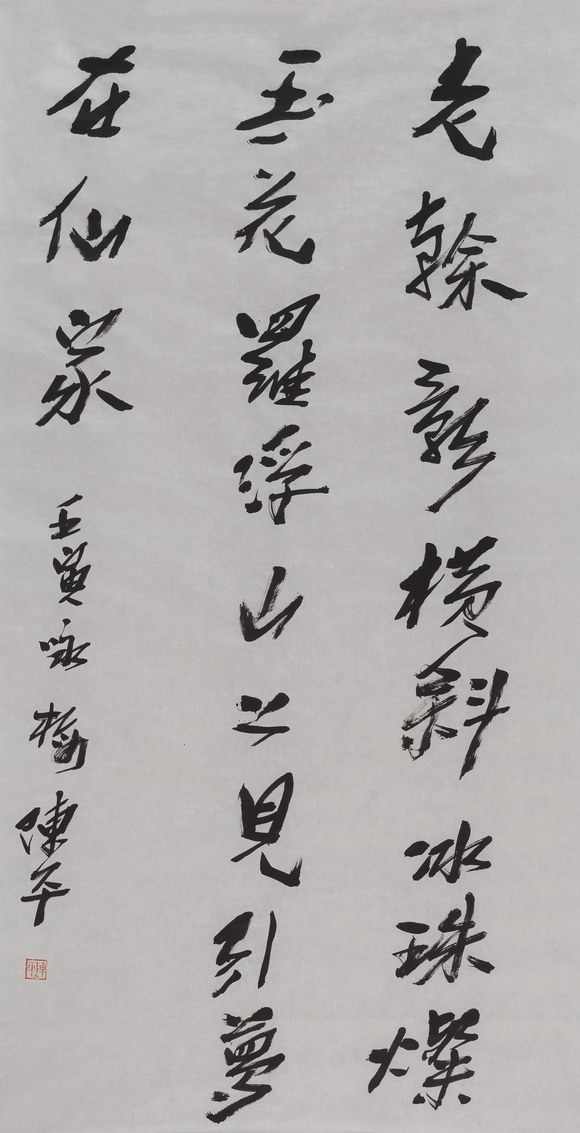 老榦新橫斜冰珠燦
玉花羅浮山上見引夢
在仙家
壬寅詠梅陳平